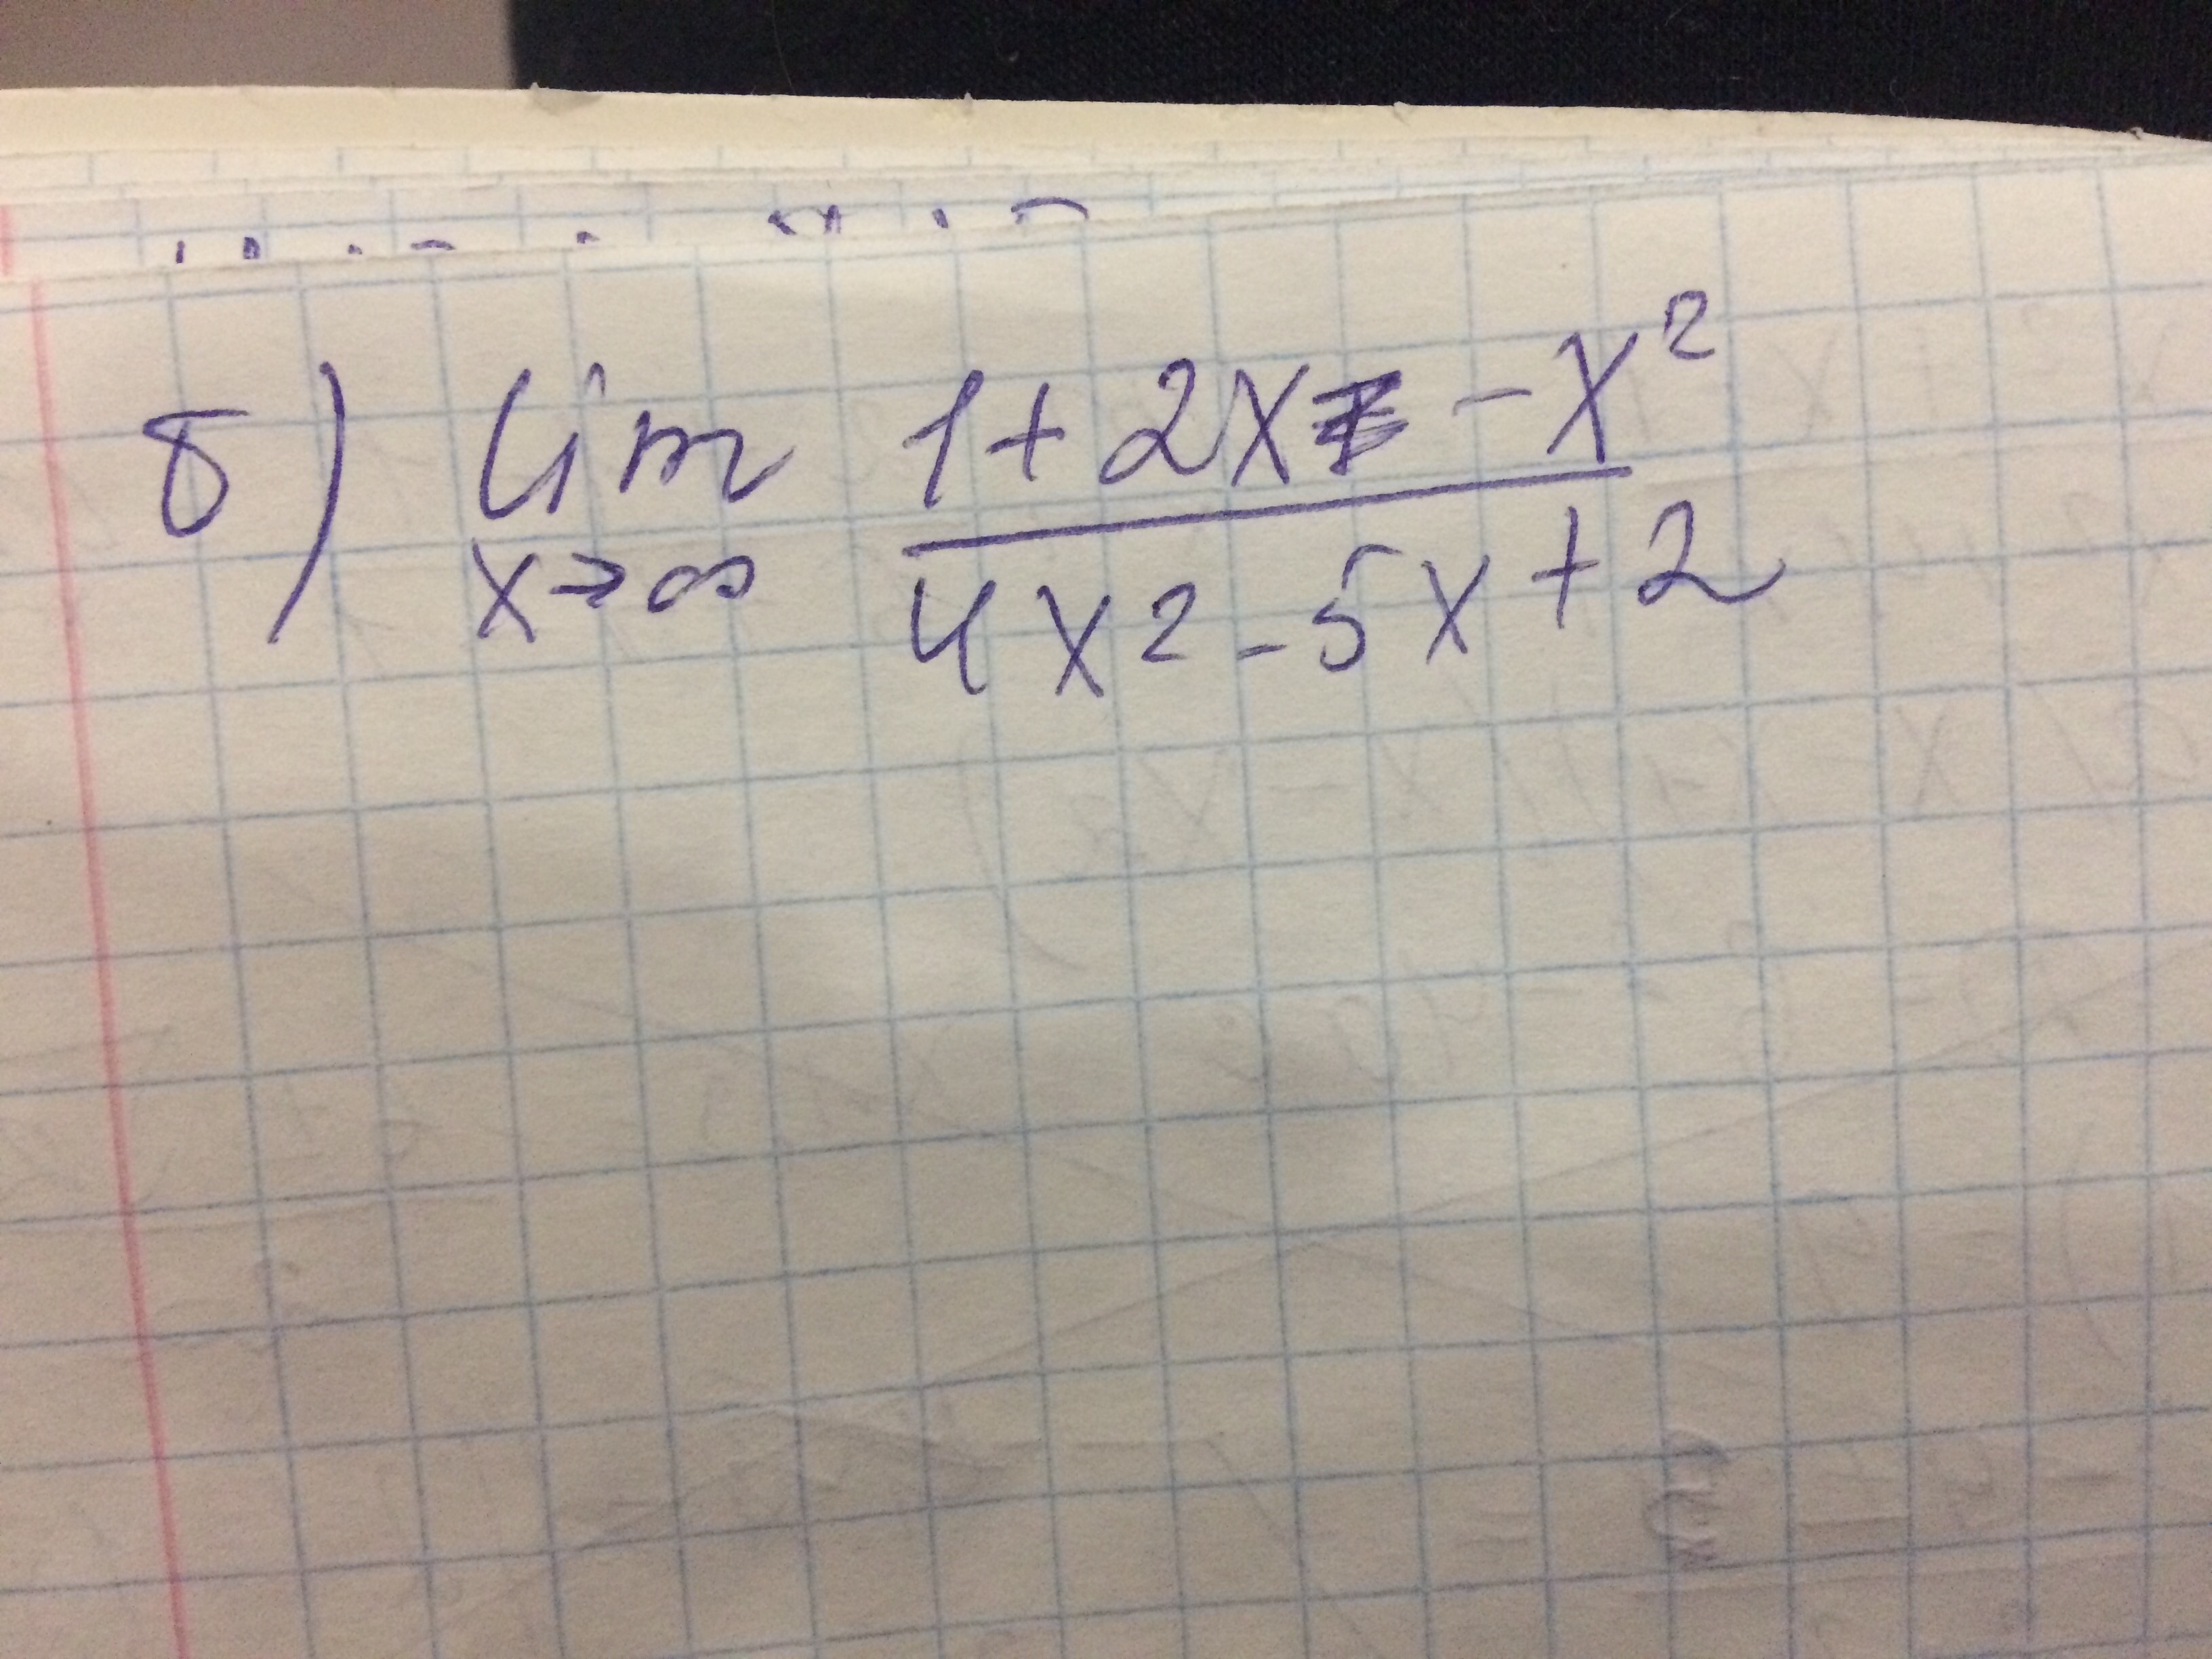 б) lim 1+2x - x²
x→∞ 4x2-5x+2